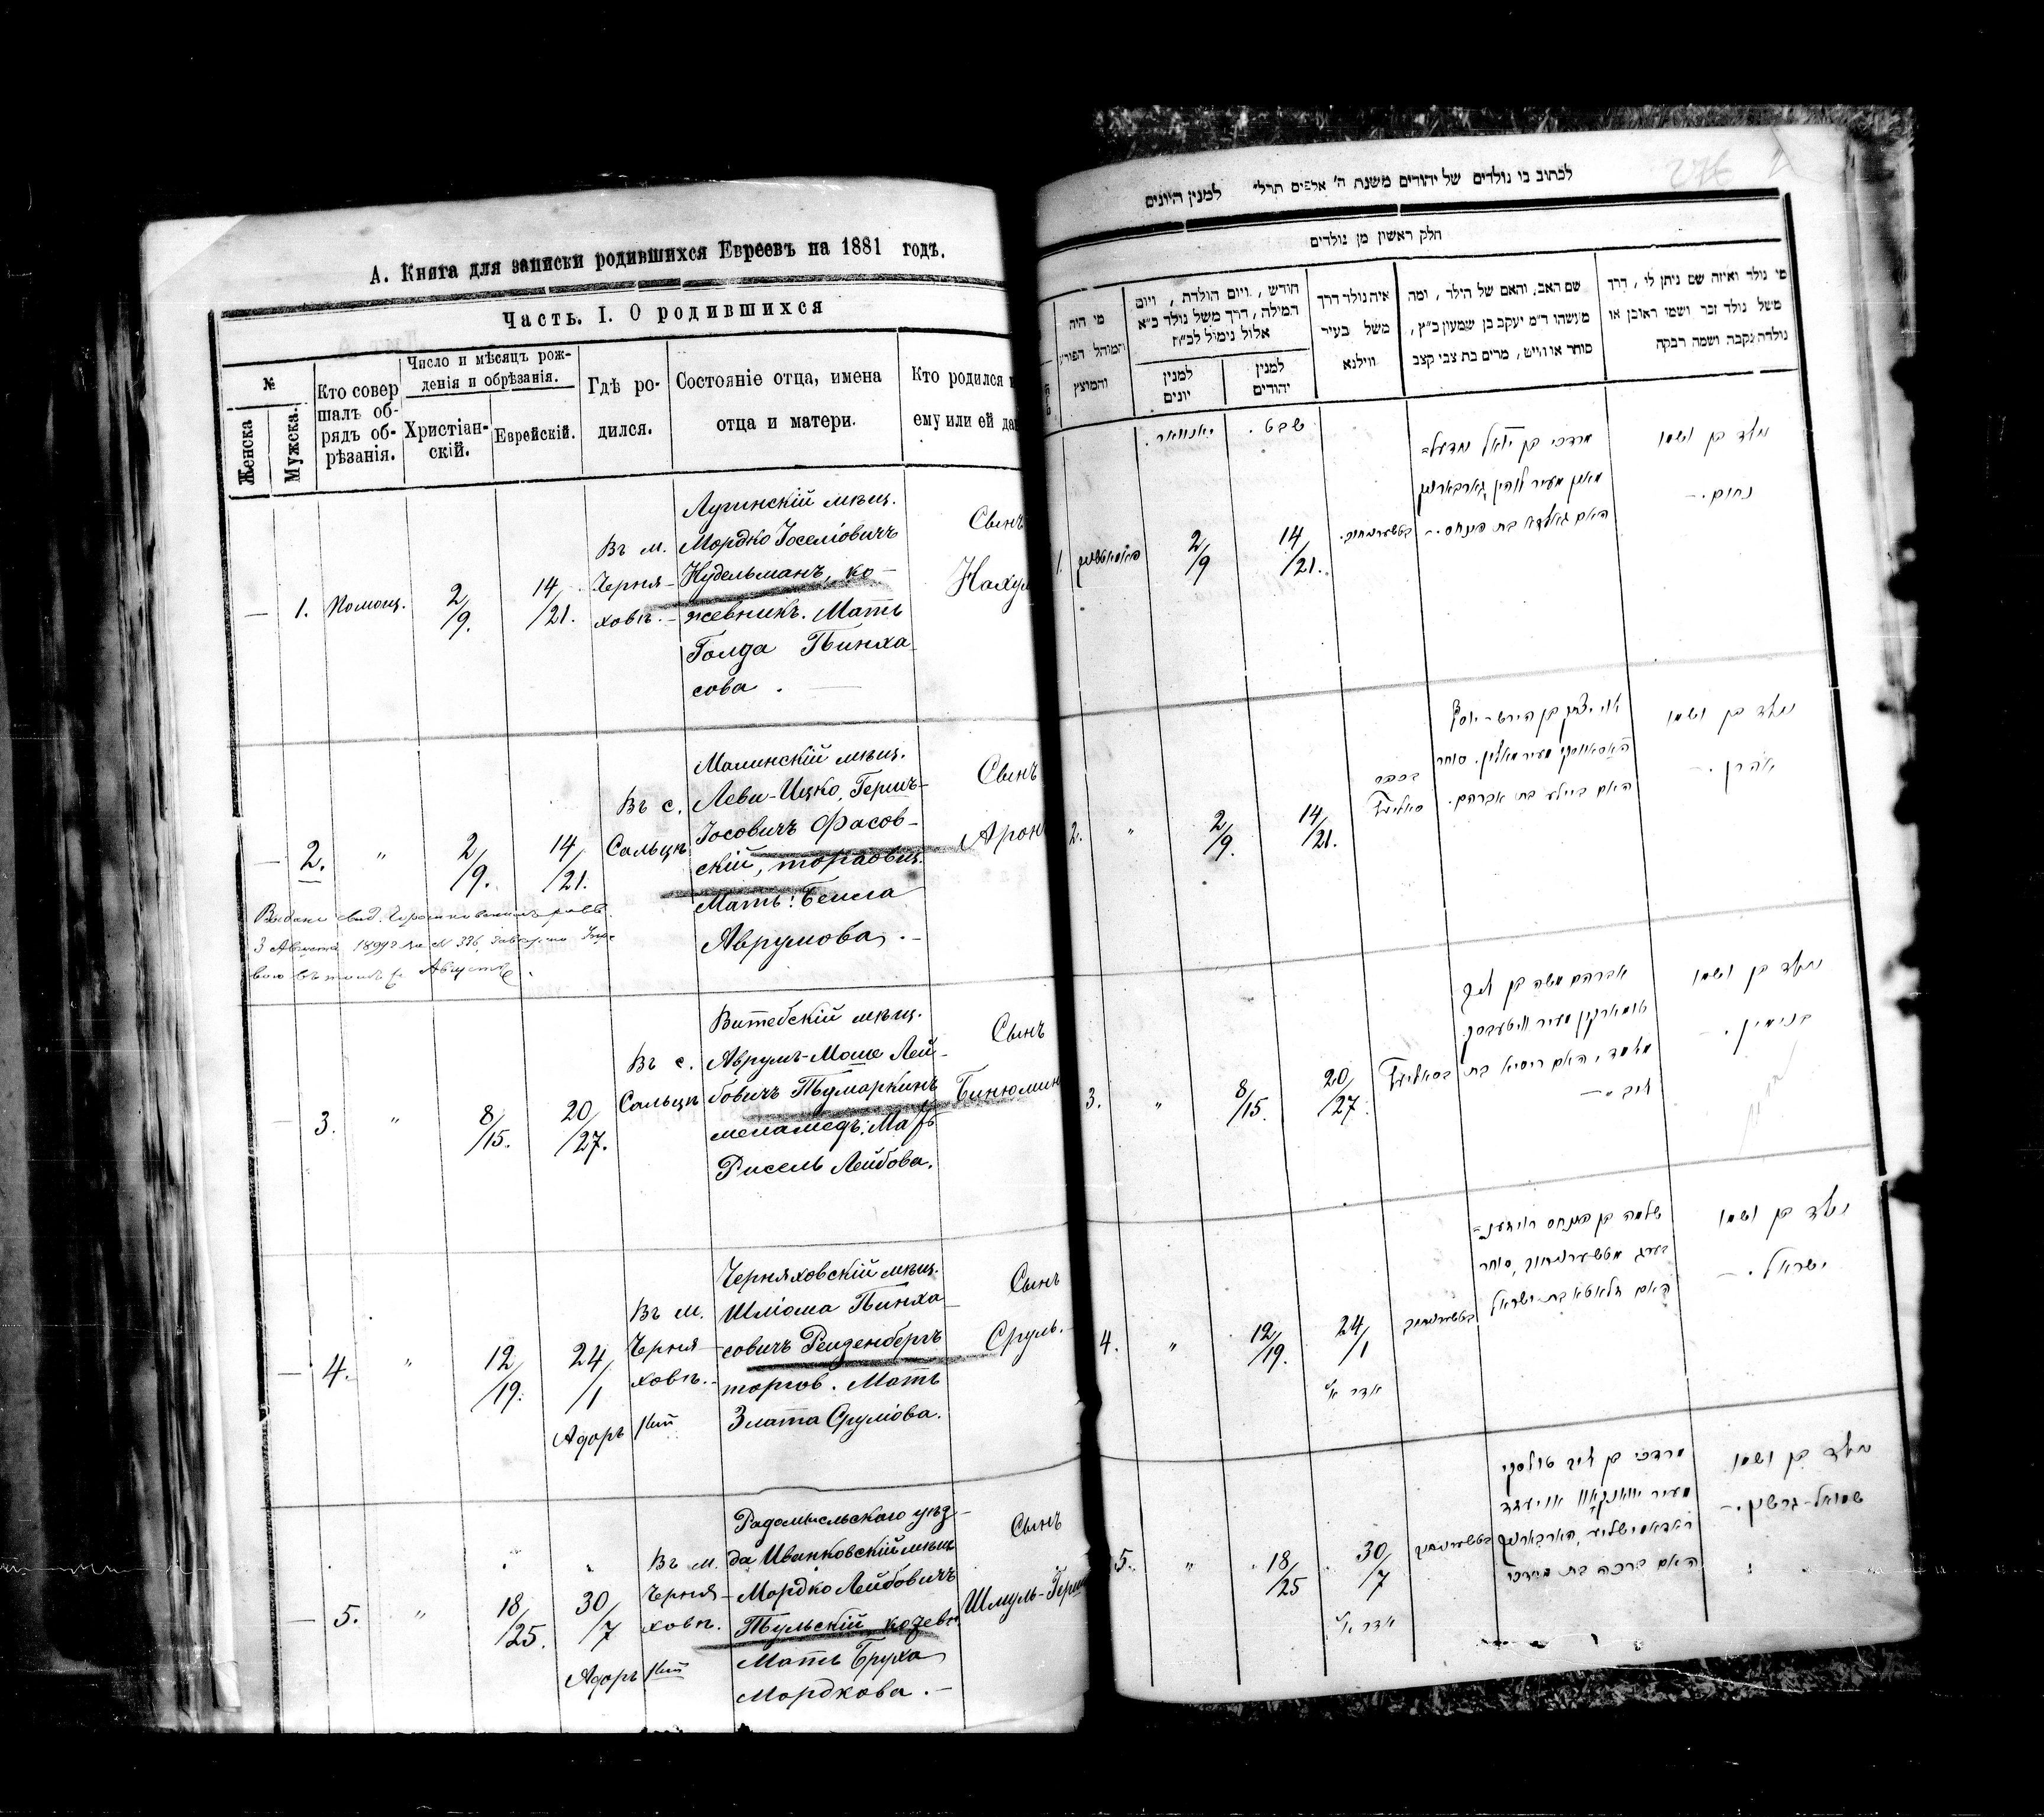 А. Книга для записки родившихся Евреевъ на 1881 годъ.
Часть. I. О родившихся
№
Женска
Мужска.
Кто совер
шалъ об-
рядъ об-
рѣзанія.
Число и мѣсяцъ рож-
денія и обрѣзанія.
Христіан-
скій.
Еврейскій.
Гдѣ ро-
дился.
Состояніе отца, имена
отца и матери.
Кто родился
ему или ей
— 1.
2/9.
14/21.
Въ м.
Черня-
ховѣ. -
Лугинскій мѣщ.
Мордко Іоселіовичъ
Нудельманъ, ко-
жевникъ. Мать
Голда Пинха
сова . —
Сынъ
Нахум
— 2.
"
2/9.
14/21.
Въ с.
Сальцѣ
Малинскій мѣщ.
Леви-Ицко, Гершъ-
Іосовичъ Фасов-
скій, торговец.
Мать: Бейла
Аврумова, . -
Сынъ
Арон
3 Августа
Августа
3.
"
8/15.
20/27.
Въ с.
Сальцѣ
Витебскій мѣщ.
Аврумъ-Моше Лей-
бовичъ Тумаркинъ
меламедъ: Мать
Рисель Лейбова.
Сынъ
Бинюмин
— 4.
"
12/19.
24/1
Адаръ
Въ м.
Черня-
ховѣ. -
Черняховскій мѣщ.
Шліома Пинха
совичъ Рейзенбергъ
торгов. Мать
Злата Сруліова.
Сынъ
Сруль.
— 5.
"
18/25.
30/7
Адаръ
Въ м.
Черня-
ховѣ.
Радомысльскаго уѣз-
да Иванковскій мѣщ
Мордко Лейбовичъ
Тульскій кожевн.
Мать Бруха
Мордкова. -
Сынъ
Шмуль-Герш
לכתוב בו נולדים של יהודים משנת ה' אלפים תרל" למנין היונים
חלק ראשון מן נולדים
מי נולד ואיזה שם ניתן לו, דרך
משל נולד זכר ושמו ראובן או
נולדה נקבה ושמה רבקה
שם האב, והאם של הילד, ומה
מעשהו ד"מ יעקב בן שמעון כ"ץ,
סוחר או חייט, מרים בת צבי קצב
איה נולד דרך
משל בעיר
ווילנא
חודש, ויום הולדת, ויום
המילה, דרך משל נולד כ"א
אלול נימול לכ"ח
למנין
יהודים
למנין
יונים
מי היה
המוהל הפורע
והמוצץ
נולד בן ושמו
נחום. -
מרדכי בן יואל נודעל=
האם גאלדא בת פינחס. -
שבט.
יאנוואר.
14/21.
2/9
1.
נולד בן ושמו
אהרן. -
לוי יצחק בן הירש-יוסף
מעיר מאלין. סוחר
האם ביילע בת אברהם.
בכפר
14/21.
2/9.
"
2.
נולד בן ושמו
בנימין. -
אברהם משה בן ליב
טומארקין מעיר וויטעבסק
מלמד, האם ריסיא בת
ליב. -
20/27.
8/15.
"
3.
נולד בן ושמו
ישראל. -
שלמה בן פינחס רייזענ=
בערג מטשערניחוב, סוחר
האם זלאטא בת ישראל
בטשערניחוב
24/1
אדר א'
12/19.
"
4.
נולד בן ושמו
שמואל-גרשון. -
מרדכי בן ליב טולסקי
מעיר איוואנקאוו אויעזד
האם ברכה בת מרדכי
בטשערניחוב
30/7
אדר א'
18/25
"
5.